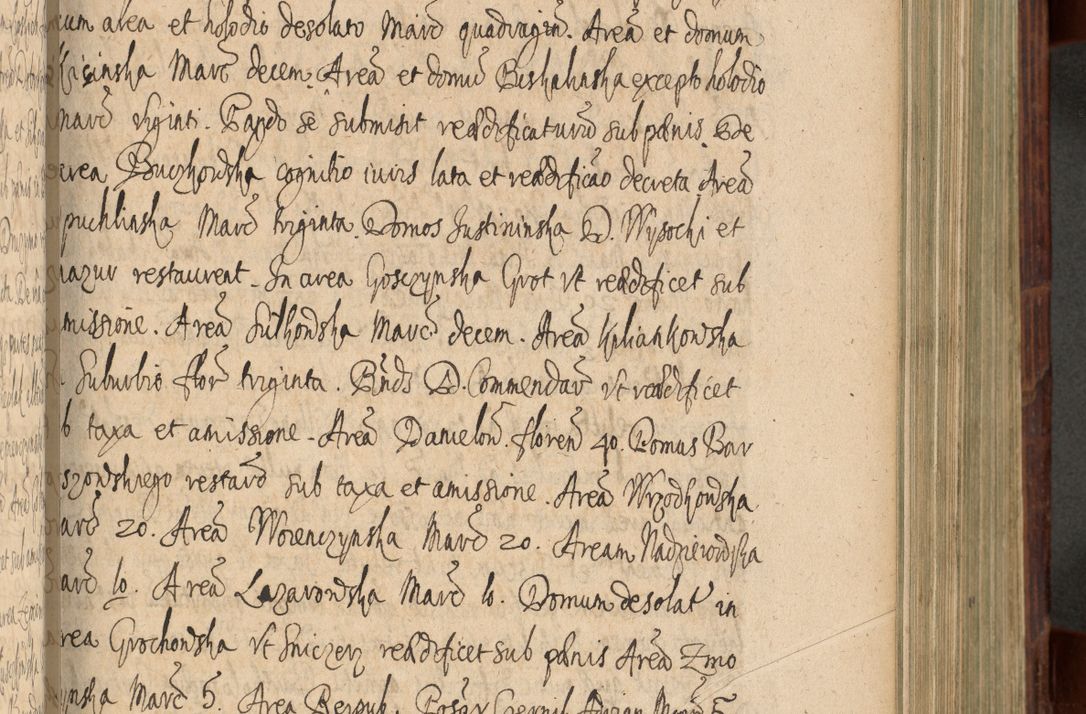 cum area et holodio desolato Marc̃ quadragin̄. Areā et domum
Kicinska Marc̃ decem. Areā et domū Biskahnska excepto holodio
Marc̃ viginti. Pando se submisit reædificaturū sub pœnis. De
area Buczkowska cognitio iuris lata et reædificāo decreta. Areā
puchlinska Marc̃ triginta. Domos Justininska D. Wysocki et
Mazur restaurent. In area Gosczynska Grot vt reædificet sub
amissione. Areā Sulkowska Marc̃ decem. Areā Kiliankowska
Suburbio flor̃ triginta. Rn̄ds D. Commendar̃ vt reædificet
sub taxa et amissione. Areā Danielow̃. floreñ 40. Domus Bar
szowskiego restaur̃ sub taxa et amissione. Areā Wrzodkowska
Marc̃ 20. Areā Worenczynska Marc̃ 20. Aream Nadzierowska
Marc̃ lo. Areā Lazarowska Marc̃ lo. Domum desolat̃ in
area Grochowska vt Sniczerz reædificet sub pœnis Areā Zmo
ynska Marc̃ 5. Area